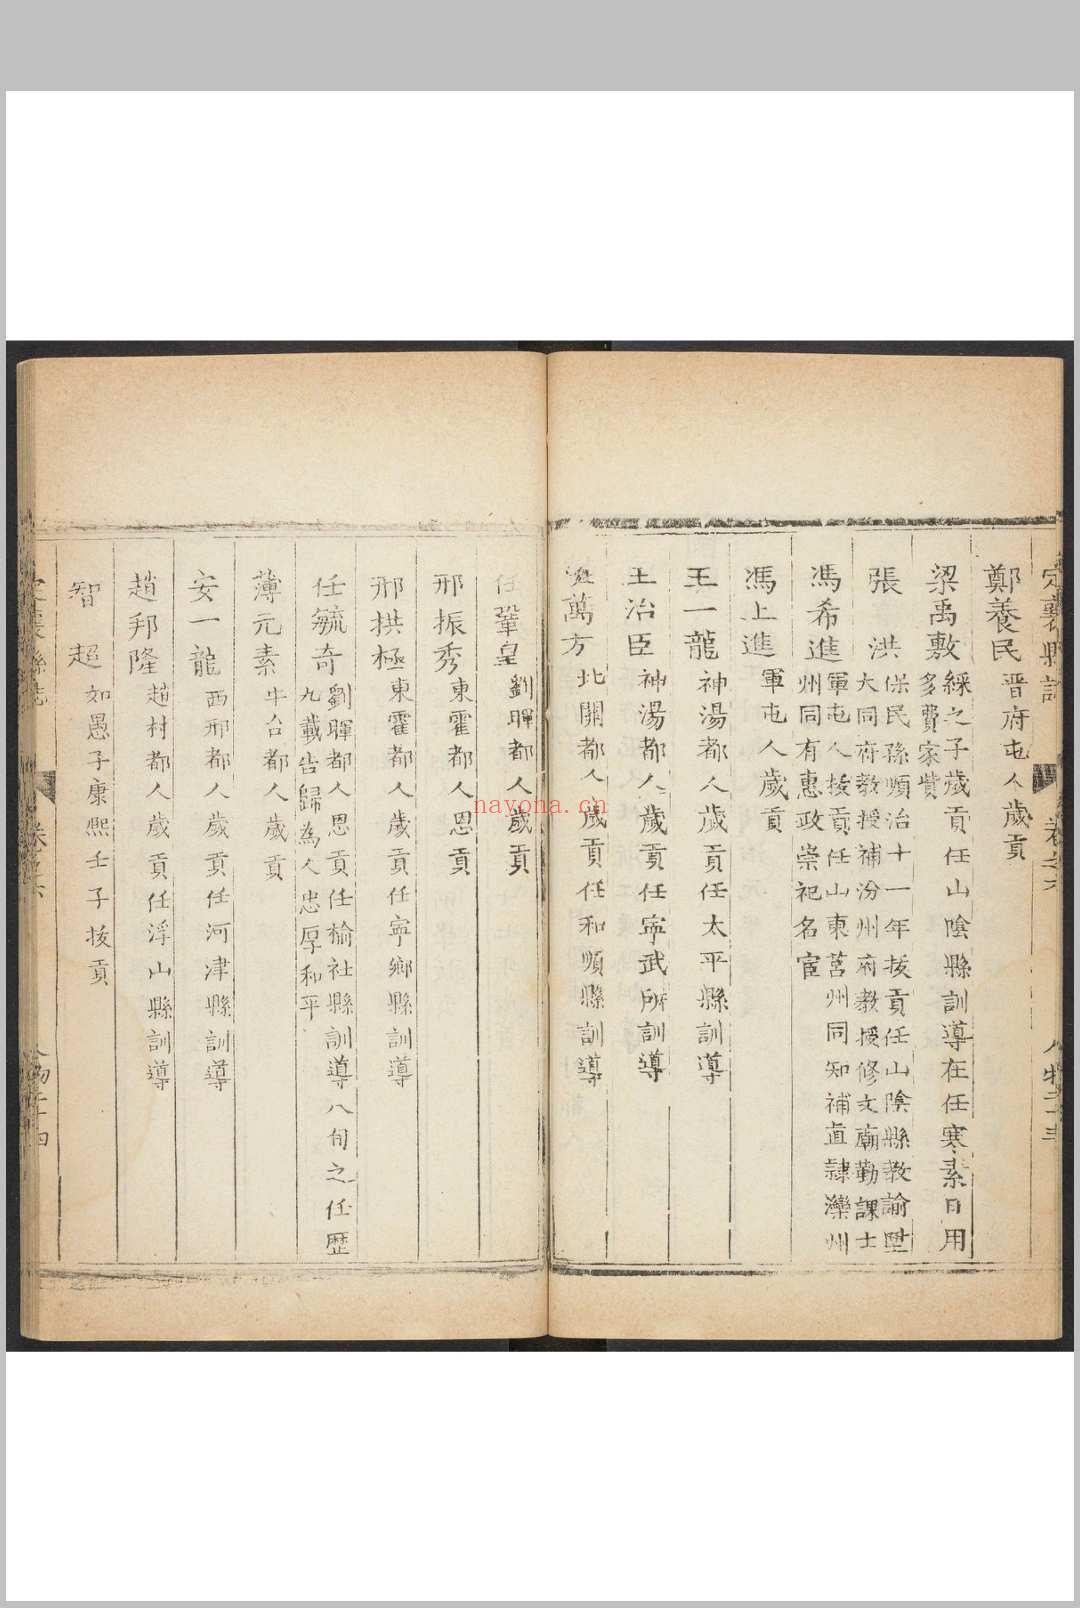 定襄縣誌
卷之六
人物二十三
鄭養民 晋府屯人歲貢
梁禹敷 綵之子歲貢任山陰縣訓導在任寒素日用
多費家貲
張 洪 保民孫順治十一年拔貢任山陰縣教諭陞
大同府教授補汾州府教授修文廟勤課士
馮希進 軍屯人拔貢任山東莒州同知補直隷灤州
州同有惠政崇祀名宦
馮上進 軍屯人歲貢
王一龍 神湯都人歲貢任太平縣訓導
王治臣 神湯都人歲貢任寧武所訓導
萬方 北關都人歲貢任和順縣訓導
任鞏皇 劉暉都人歲貢
邢振秀 東霍都人恩貢
邢拱極 東霍都人歲貢任寧鄉縣訓導
任毓奇 劉暉都人恩貢任榆社縣訓導八旬之任歷
九載告歸為人忠厚和平
薄元素 牛台都人歲貢
安一龍 西邢都人歲貢任河津縣訓導
趙邦隆 趙村都人歲貢任浮山縣訓導
智 超 如愚子康熙壬子拔貢
定襄縣誌
卷之六
人物二十四
nayona.cn